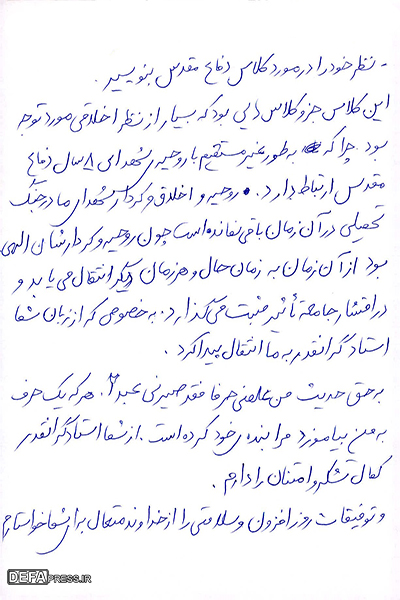 - نظر خود را در مورد کلاس دفاع مقدس بنویسید.
این کلاس جزو کلاس هایی بود که بسیار از نظر اخلاقی مورد توجه
بود. چرا که به طور غیر مستقیم با روحیه ی شهدای ۸ سال دفاع
مقدس ارتباط دارد. روحیه و اخلاق و کردار شهدای ما در جنگ
تحمیلی در آن زمان باقی نمانده است چون روحیه و کردارشان الهی
بود از آن زمان به زمان حال و هر زمان دیگر انتقال می یابد و
در اقشار جامعه تأثیر مثبت می گذارد. به خصوص که از زبان شما
استاد گرانقدر به ما انتقال پیدا کرد.
به حق حدیث من علمنی حرفا فقد صیرنی عبدا. هر که یک حرف
به من بیاموزد مرا بنده ی خود کرده است. از شما استاد گرانقدر
کمال تشکر و امتنان را دارم.
و توفیقات روز افزون و سلامتی را از خداوند متعال برای شما خواستارم
DEFAPRESS.IR